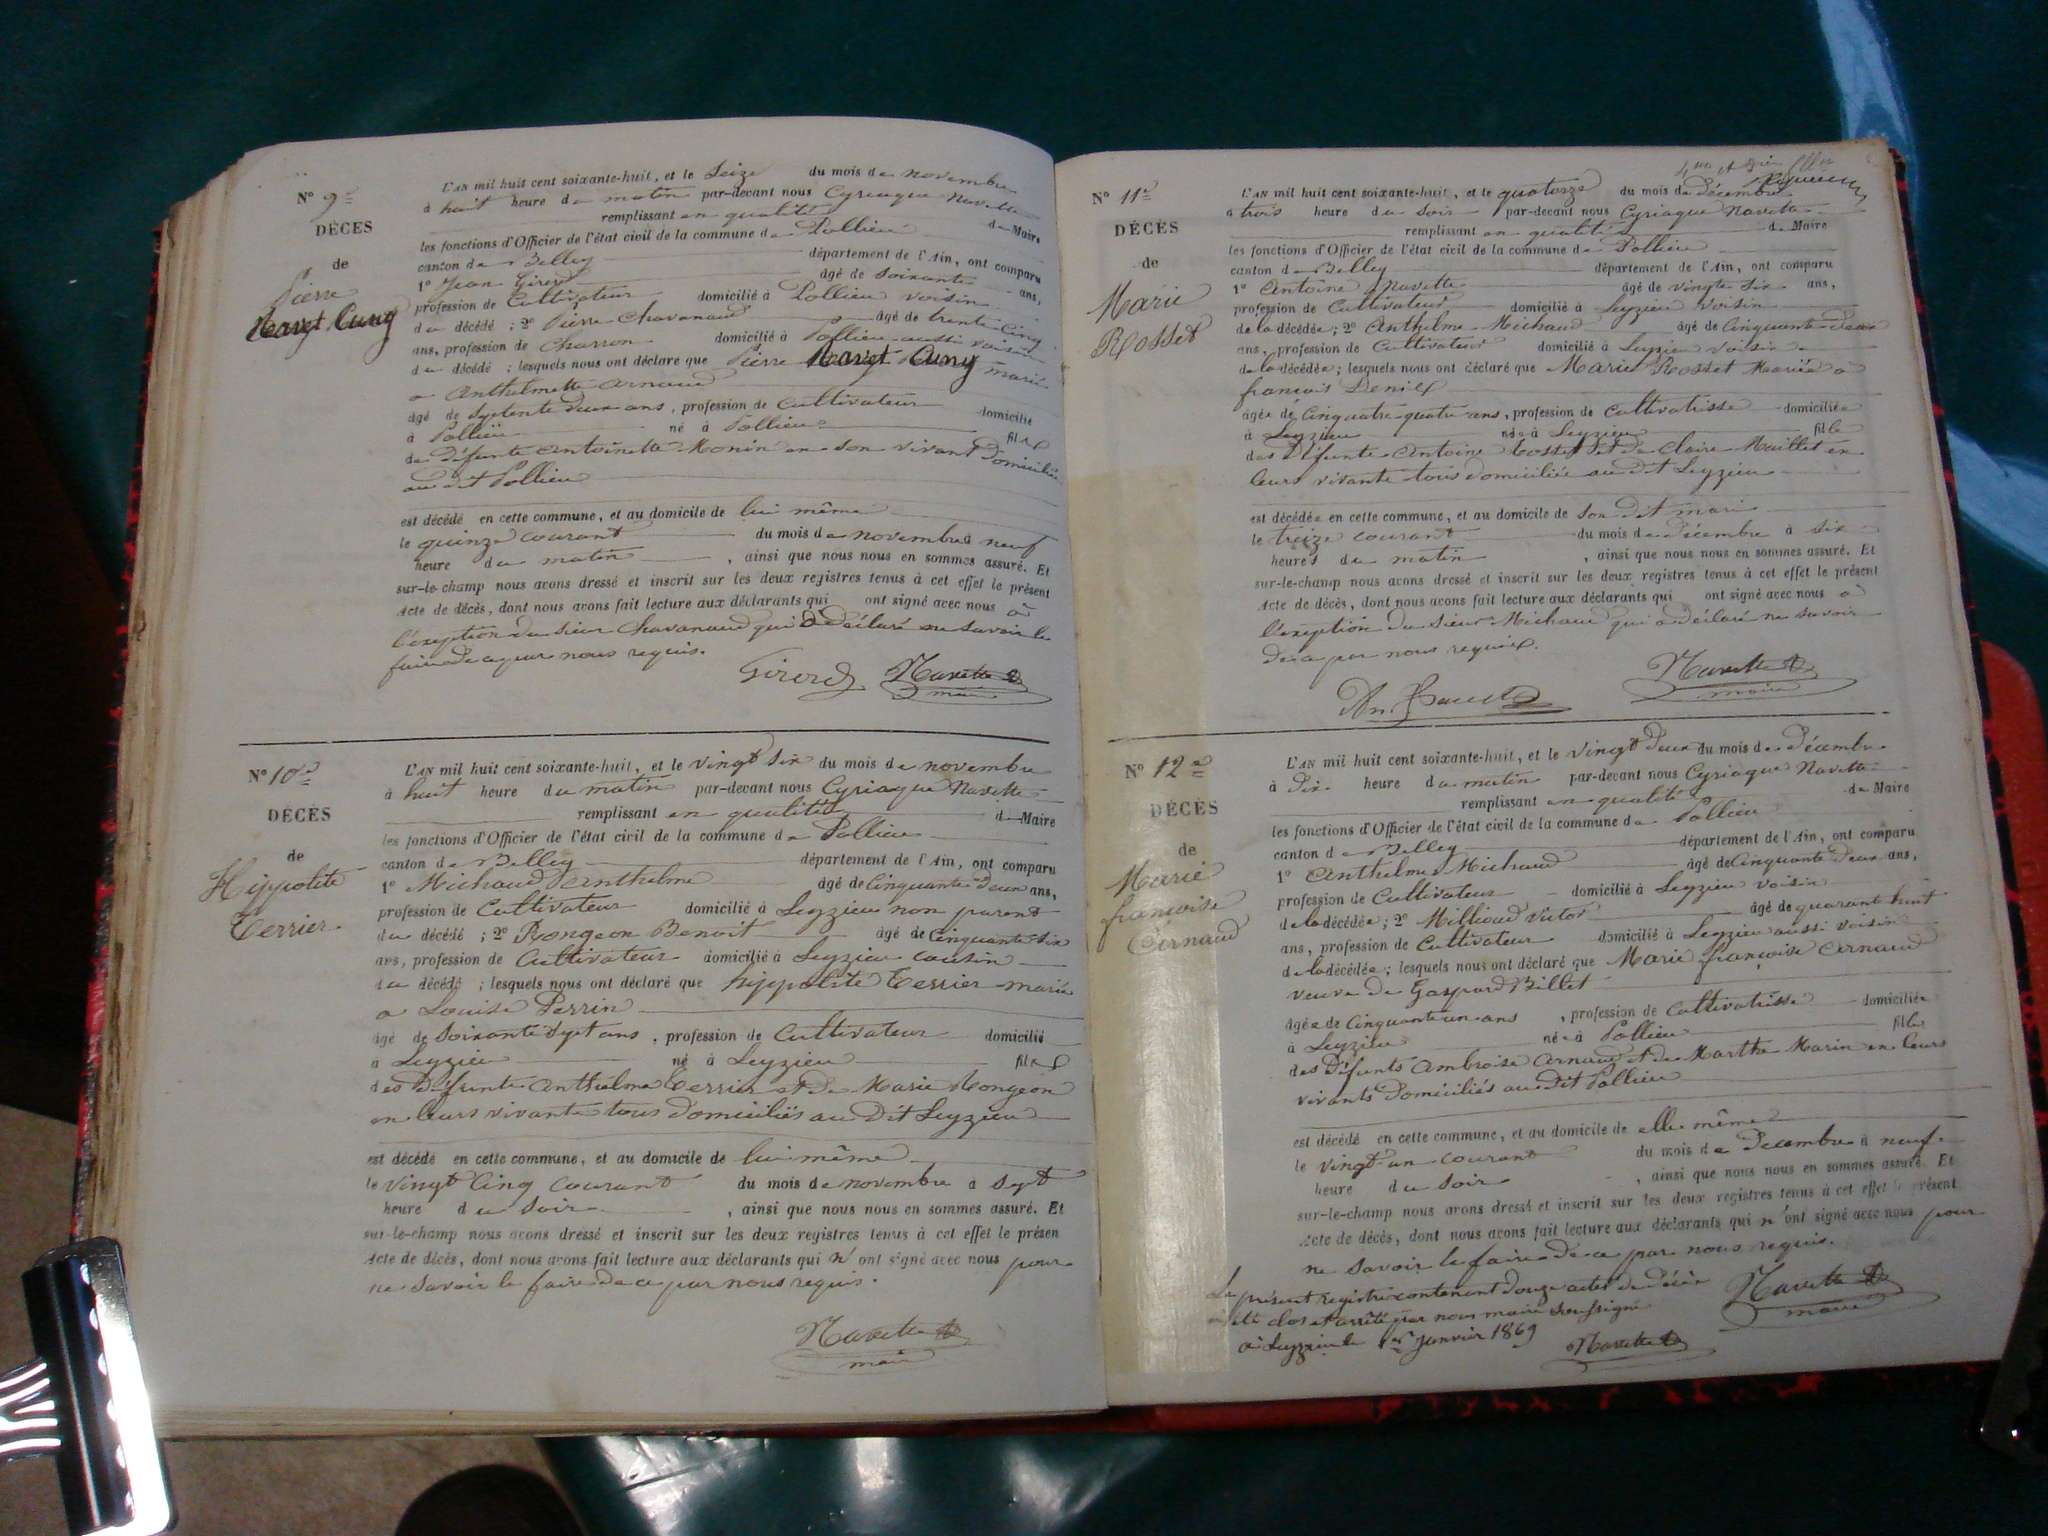 N° 9e
DÉCÈS
de
Pierre
Navet Cuny
L'AN mil huit cent soixante-huit, et le Seize du mois de novembre
à huit heure du matin par-devant nous Cyriaque Navette
remplissant en qualité de Maire
les fonctions d'Officier de l'état civil de la commune de Pollieu
canton de Belley département de l'Ain, ont comparu
1° Jean Girerd âgé de soixante ans,
profession de Cultivateur domicilié à Pollieu voisin
du décédé ; 2° Pierre Chavanaud âgé de trente cinq
ans, profession de Charron domicilié à Pollieu aussi voisin
du décédé ; lesquels nous ont déclaré que Pierre Navet Cuny marié
a Anthelmette Arnaud
âgé de septente deux ans, profession de Cultivateur domicilié
à Pollieu né à Pollieu fils
de défunte Antoinette Monin en son vivant domiciliée
au dit Pollieu
est décédé en cette commune, et au domicile de lui même
le quinze courant du mois de novembre à neuf
heure du matin , ainsi que nous nous en sommes assuré. Et
sur-le-champ nous avons dressé et inscrit sur les deux registres tenus à cet effet le présent
Acte de décès, dont nous avons fait lecture aux déclarants qui ont signé avec nous à
l'exeption du sieur Chavanaud qui a déclaré ne savoir le
faire de ce par nous requis.
Girerd Navette
maire
N° 10e
DÉCÈS
de
Hippolite
Terrier
L'AN mil huit cent soixante-huit, et le vingt six du mois de novembre
à huit heure du matin par-devant nous Cyriaque Navette
remplissant en qualité de Maire
les fonctions d'Officier de l'état civil de la commune de Pollieu
canton de Belley département de l'Ain, ont comparu
1° Michaud Anthelme âgé de Cinquante deux ans,
profession de Cultivateur domicilié à Leyzieu non parent
du décédé ; 2° Rongeon Benoit âgé de Cinquante six
ans, profession de Cultivateur domicilié à Leyzieu cousin
du décédé ; lesquels nous ont déclaré que hippolité Terrier marié
a Louise Perrin
âgé de Soixante sept ans , profession de Cultivateur domicilié
à Leyzieu né à Leyzieu fils
des défunts Anthelme Terrier et de Marie Rongeon
en leurs vivants tous domiciliés au Dit Leyzieu
est décédé en cette commune, et au domicile de lui même
le vingt Cinq courant du mois de novembre a sept
heure du soir , ainsi que nous nous en sommes assuré. Et
sur-le-champ nous avons dressé et inscrit sur les deux registres tenus à cet effet le présen
Acte de décès, dont nous avons fait lecture aux déclarants qui n'ont signé avec nous pour
ne savoir le faire de ce par nous requis.
Navette
maire
N° 11e
DÉCÈS
de
Marie
Rosset
L'AN mil huit cent soixante-huit, et le quatorze du mois de décembre
à trois heure du soir par-devant nous Cyriaque Navette
remplissant en qualité de Maire
les fonctions d'Officier de l'état civil de la commune de Pollieu
canton de Belley département de l'Ain, ont comparu
1° Antoine Navette âgé de vingt six ans,
profession de Cultivateur domicilié à Leyzieu voisin
de la décédée ; 2° Anthelme Michaud âgé de Cinquante deux
ans, profession de Cultivateur domicilié à Leyzieu voisin
de la décédée ; lesquels nous ont déclaré que Marie Rosset Mariée a
françois
âgée de Cinquatre-quatre ans, profession de Cultivatrisse domiciliée
à Leyzieu née à Leyzieu fille
des Défunts Antoine Rosset et de Claire Maillet en
leurs vivants tous domiciliés au dit Leyzieu
est décédée en cette commune, et au domicile de son dit mari
le treize courant du mois de décembre à six
heures du matin , ainsi que nous nous en sommes assuré. Et
sur-le-champ nous avons dressé et inscrit sur les deux registres tenus à cet effet le présent
Acte de décès, dont nous avons fait lecture aux déclarants qui ont signé avec nous à
l'exeption du sieur Michaud qui a déclaré ne savoir
de ce par nous requis.
Navette
maire
N° 12e
DÉCÈS
de
Marie
françoise
Arnaud
L'AN mil huit cent soixante-huit, et le vingt deux du mois de décembre
à dix heure du matin par-devant nous Cyriaque Navette
remplissant en qualité de Maire
les fonctions d'Officier de l'état civil de la commune de Pollieu
canton de Belley département de l'Ain, ont comparu
1° Anthelme Michaud âgé de Cinquante deux ans,
profession de Cultivateur domicilié à Leyzieu voisin
de la décédée ; 2° Millioud Victor âgé de quarant huit
ans, profession de Cultivateur domicilié à Leyzieu aussi voisin
de la décédée ; lesquels nous ont déclaré que Marie françoise Arnaud
veuve de Gaspard Billet
âgée de Cinquante un ans , profession de Cultivatrisse domiciliée
à Leyzieu née à Pollieu fille
des Défunts Ambroise Arnaud et de Marthe Marin en leurs
vivants domiciliés au dit Pollieu
est décédé en cette commune, et au domicile de elle même
le vingt-un courant du mois de Décembre à neuf
heure du soir , ainsi que nous nous en sommes assuré. Et
sur-le-champ nous avons dressé et inscrit sur les deux registres tenus à cet effet le présent
Acte de décès, dont nous avons fait lecture aux déclarants qui n'ont signé avec nous pour
ne savoir le faire de ce par nous requis.
Navette
maire
Le présent registre contenant douze actes de décès
a été clos et arrêté par nous maire soussigné
à Leyzieu le 1er Janvier 1869
Navette